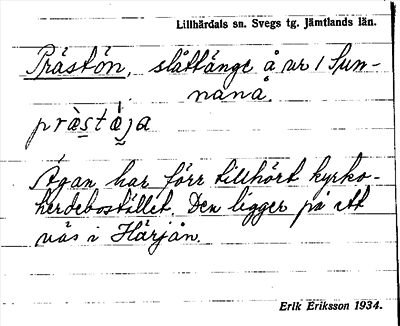 Lillhärdals sn. Svegs tg. Jämtlands län.
Prästön, slåttänge å ur 1 Sun-
nanå.
präs̱tä̀ja
Ägan har förr tillhört kyrko-
herdebostället. Den ligger på ett
näs i Härjån.
Erik Eriksson 1934.